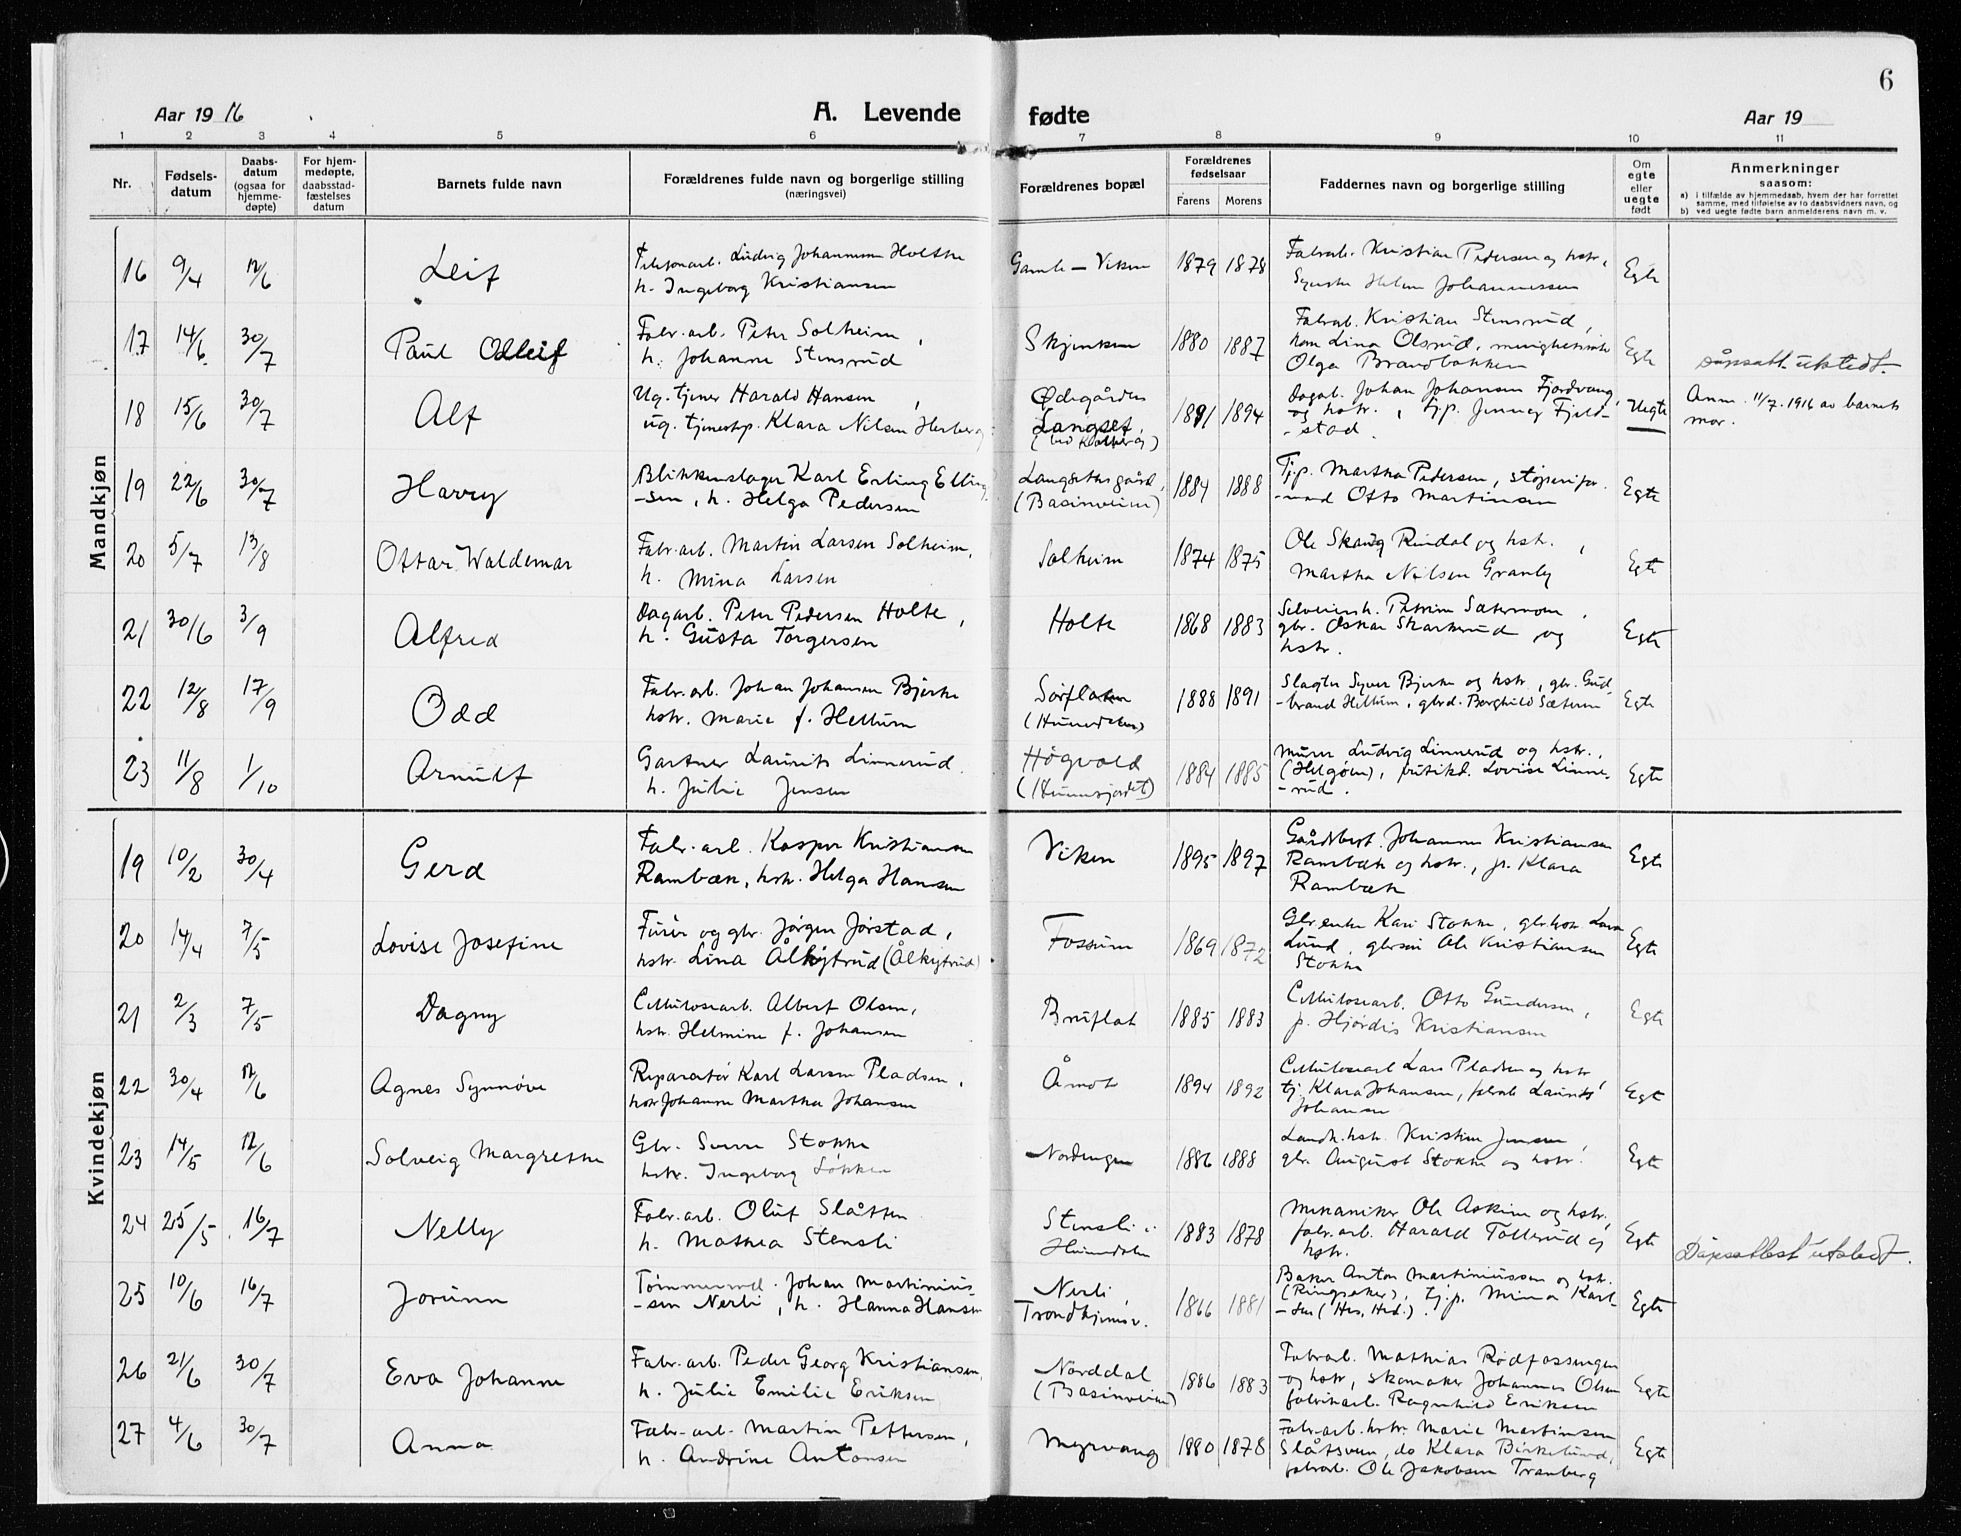 6
Aar 19 16 A. Levende fødte Aar 19
1 2 3 4 5 6 7 8 9 10 11
Nr. Fødsels-datum Daabs-datum (ogsaa for hjemme-døpte) For hjem-medøpte, daabsstad-fæstelses datum Barnets fulde navn Forældrenes fulde navn og borgerlige stilling (næringsvei) Forældrenes bopæl Forældrenes fødselsaar Farens Morens Faddernes navn og borgerlige stilling Om egte eller uegte født Anmerkninger saasom:
a) i tilfælde av hjemmedaab, hvem der har forrettet samme, med tilføielse av to daabsvidners navn, og
b) ved uegte fødte barn anmelderens navn m. v.
Mandkjøn
16 9/4 12/6 Leif Ludvig Johannesen Holthe
h. Ingeborg Kristiansen Gamle-Viken 1879 1878 Fabrarb. Kristian Pedersen og hstr.,
Helene Johannessen Egte
17 14/6 30/7 Paul Odleif Fabr.arb. Peter Solheim,
h. Johanne Stensrud Skjenken 1880 1887 Fabrarb. Kristian Stensrud,
Lina Olsrud,
Olga Brandbakken Egte Dåpsatt. utstedt.
18 15/6 30/7 Alf Ug. tjener Harald Hansen,
ug. tjenestep. Klara Nilsen Herberg Ødegården
Langset.
(ved Kolberg) 1891 1894 Dagarb. Johan Johansen Fjordvang,
og hstr., tjp. Jenney Fjeld-
-stad. Uegte Anm. 11/7. 1916 av barnets
mor.
19 22/6 30/7 Harry Blikkenslager Karl Erling Elling-
-sen, h. Helga Pedersen Langsetergård,
(Basinveien) 1884 1888 Tj.p. Martha Pedersen, støperifor-
-mand Otto Martinsen Egte
20 5/7 13/8 Ottar Waldemar Fabr.arb. Martin Larsen Solheim,
h. Mina Larsen Solheim 1874 1875 Ole Skaug Rindal og hstr.,
Martha Nilsen Granby Egte
21 30/6 3/9 Alfred Dagarb. Peter Pedersen Holte,
h. Gusta Torgersen Holte 1868 1883 Selveiersh. Petrine Sætermoen,
gbr. Oskar Skarkerud og
hstr. Egte
22 12/8 17/9 Odd Fabr.arb. Johan Johansen Bjerke
hstr. Marie f. Hellum Sørflaten
(Hunndalen) 1888 1891 Slagter Syver Bjerke og hstr., gbr. Gud-
-brand Hellum, gbrd. Borghild Sæteren Egte
23 11/8 1/10 Arnulf Gartner Laurits Linnerud.
h. Julie Jensen Høgvold
(Hunnsjordet) 1884 1885 Murer Ludvig Linnerud og hstr.,
(Helgøen), butikd. Lovise Linne-
-rud. Egte
Kvindekjøn
19 10/2 30/4 Gerd Fabr.arb. Kasper Kristiansen
Rambæk, hstr. Helga Hansen Viken 1895 1897 Gårdbest. Johannes Kristiansen
Rambæk og hstr., p. Klara
Rambæk Egte
20 14/4 7/5 Lovise Josefine Furer og gbr. Jørgen Jørstad,
hstr. Lina Ålkytrud (Ålkytrud) Fossum 1869 1872 Gbr.enke Kari Stokke, gbrkon. Lava
Lund, gbrsøn Ole Kristiansen
Stokke Egte
21 2/3 7/5 Dagny Cellulosearb. Albert Olsen,
hstr. Helmine f. Johansen Bruflat 1885 1883 Cellulosearb. Otto Gundersen,
p. Hjørdis Kristiansen Egte
22 30/4 12/6 Agnes Synnøve Reparatør Karl Larsen Pladsen,
hstr Johanne Martha Johansen Åmot 1894 1892 Cellulosearb Lars Pladsen og hstr
tj. Klara Johansen, fabrarb Laurits
Johansen Egte
23 14/5 12/6 Solveig Margrethe Gbr. Sverre Stokke
hstr. Ingeborg Løkken Nordengen 1886 1888 Landh.hstr. Kristine Jensen,
gbr. August Stokke og hstr. Egte
24 25/5 16/7 Nelly Fabr.arb. Oluf Slåtten
h. Mathea Stensli Stensli i
Hunndalen 1883 1878 Mekaniker Ole Askim og hstr.,
fabr.arb. Harald Tollerud og
hstr. Egte Dåpsattest utstedt.
25 10/6 16/7 Jorunn Tømmermd. Johan Martinius-
-sen Nerli, h. Hanna Hansen Nerli,
Trondhjemsv. 1866 1881 Baker Anton Martiniussen og hstr.
(Ringsaker), tj.p. Mina Karl-
-sen (Hes, Hed.). Egte
26 21/6 30/7 Eva Johanne Fabr.arb. Peder Georg Kristiansen,
h. Julie Emilie Eriksen Norddal
(Basinveien) 1886 1883 Fabrarb. Mathias Rødfossengen
og hstr, skomaker Johannes Olsen
fabrikarb. Ragnhild Eriksen Egte
27 4/6 30/7 Anna Fabr.arb. Martin Pettersen,
h. Andrine Antonsen Myrvang 1880 1878 Fabr.arb.hstr. Marie Martinsen
Slåtsveen, do Klara Birkelund,
fabrarb. Ole Jakobsen Tranberg Egte